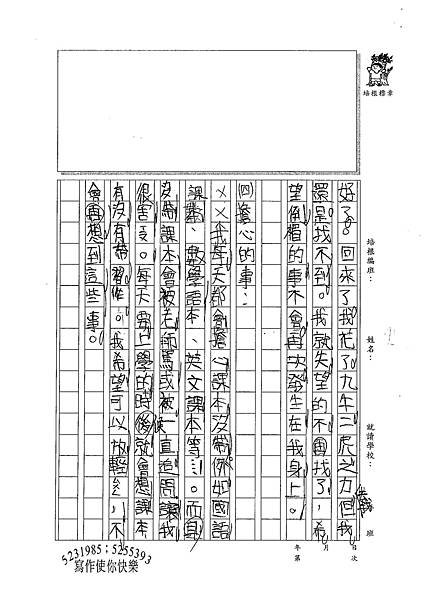 培根標章
培根編班：
姓名：
就讀學校：
班
年 月 日
第 次
好了。回來了我花了九牛二虎之力但我
還是找不到。我就失望的不再找了，希
望倒楣的事不會再次發生在我身上。
㈣擔心的事：
ㄨㄨ我每天都會擔心課本沒帶例如國語
課本、數學課本、英文課本等…。而且
沒帶課本會被老師罵或被一直追問讓我
很害怕。每天要上學的時後就會想課本
有沒有帶習作。我希望可以放輕鬆，不
會再想到這些事。
5231985；5255393
寫作使你快樂